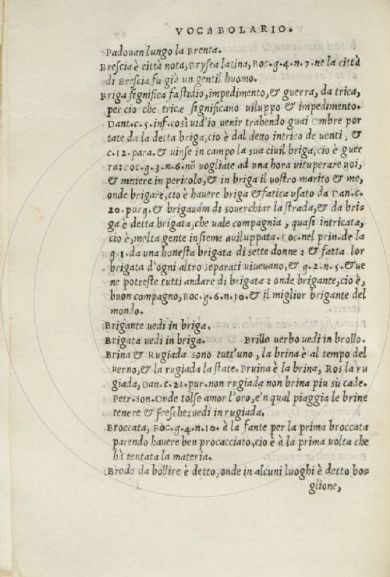 VOCABOLARIO.
Padouan lungo la Brenta.
Brescia è città nota, Brysea latina, BOC.g.4.n.7. ne la città
di Brescia fu già un gentil huomo.
Briga significa fastidio, impedimento, & guerra, da trica,
per cio che tricæ significano uiluppo & impedimento.
Dant.c.5.inf.così vid'io venir trahendo guai Ombre por
tate da la detta briga, cio è dal detto intrico de uenti, &
c.12.para.& uinse in campo la sua ciuil briga, cio è guer
ra: BOC.g.3.n.6.nõ vogliate ad una hora uituperare uoi,
& mettere in pericolo, & in briga il uostro marito & me,
onde brigare, cio è hauere briga & fatica usato da Dan.c.
20.purg.& brigauam di souerchiar la strada, & da bri
ga è detta brigata, che uale compagnia, quasi intricata,
cio è, molta gente insieme auiluppata. BOC.nel prin.de la
g.1.da una honesta brigata di sette donne: & fatta lor
brigata d'ogni altro separati uiueuano, & g.2.n.5.& ue
ne potreste tutti andare di brigata: onde brigante, cio è,
buon compagno, BOC.g.6.n.10.& il miglior brigante del
mondo.
Brigante uedi in briga.
Brigata vedi in briga. Brillo verbo uedi in brollo.
Brina & Rugiada sono tutt'uno, la brina è al tempo del
uerno, & la rugiada la state. Pruina è la brina, Ros la ru
giada, Dan.c.21.pur.non rugiada non brina piu sù cade.
Petr.son.Onde tolse amor l'oro, e'n qual piaggia le brine
tenere & fresche: uedi in rugiada.
Broccata, BOC.g.4.n.10. è la fante per la prima broccata
parendo hauere ben procacciato, cio è à la prima uolta che
hà tentata la materia.
Brodo da bollire è detto, onde in alcuni luoghi è detto bo
glione,